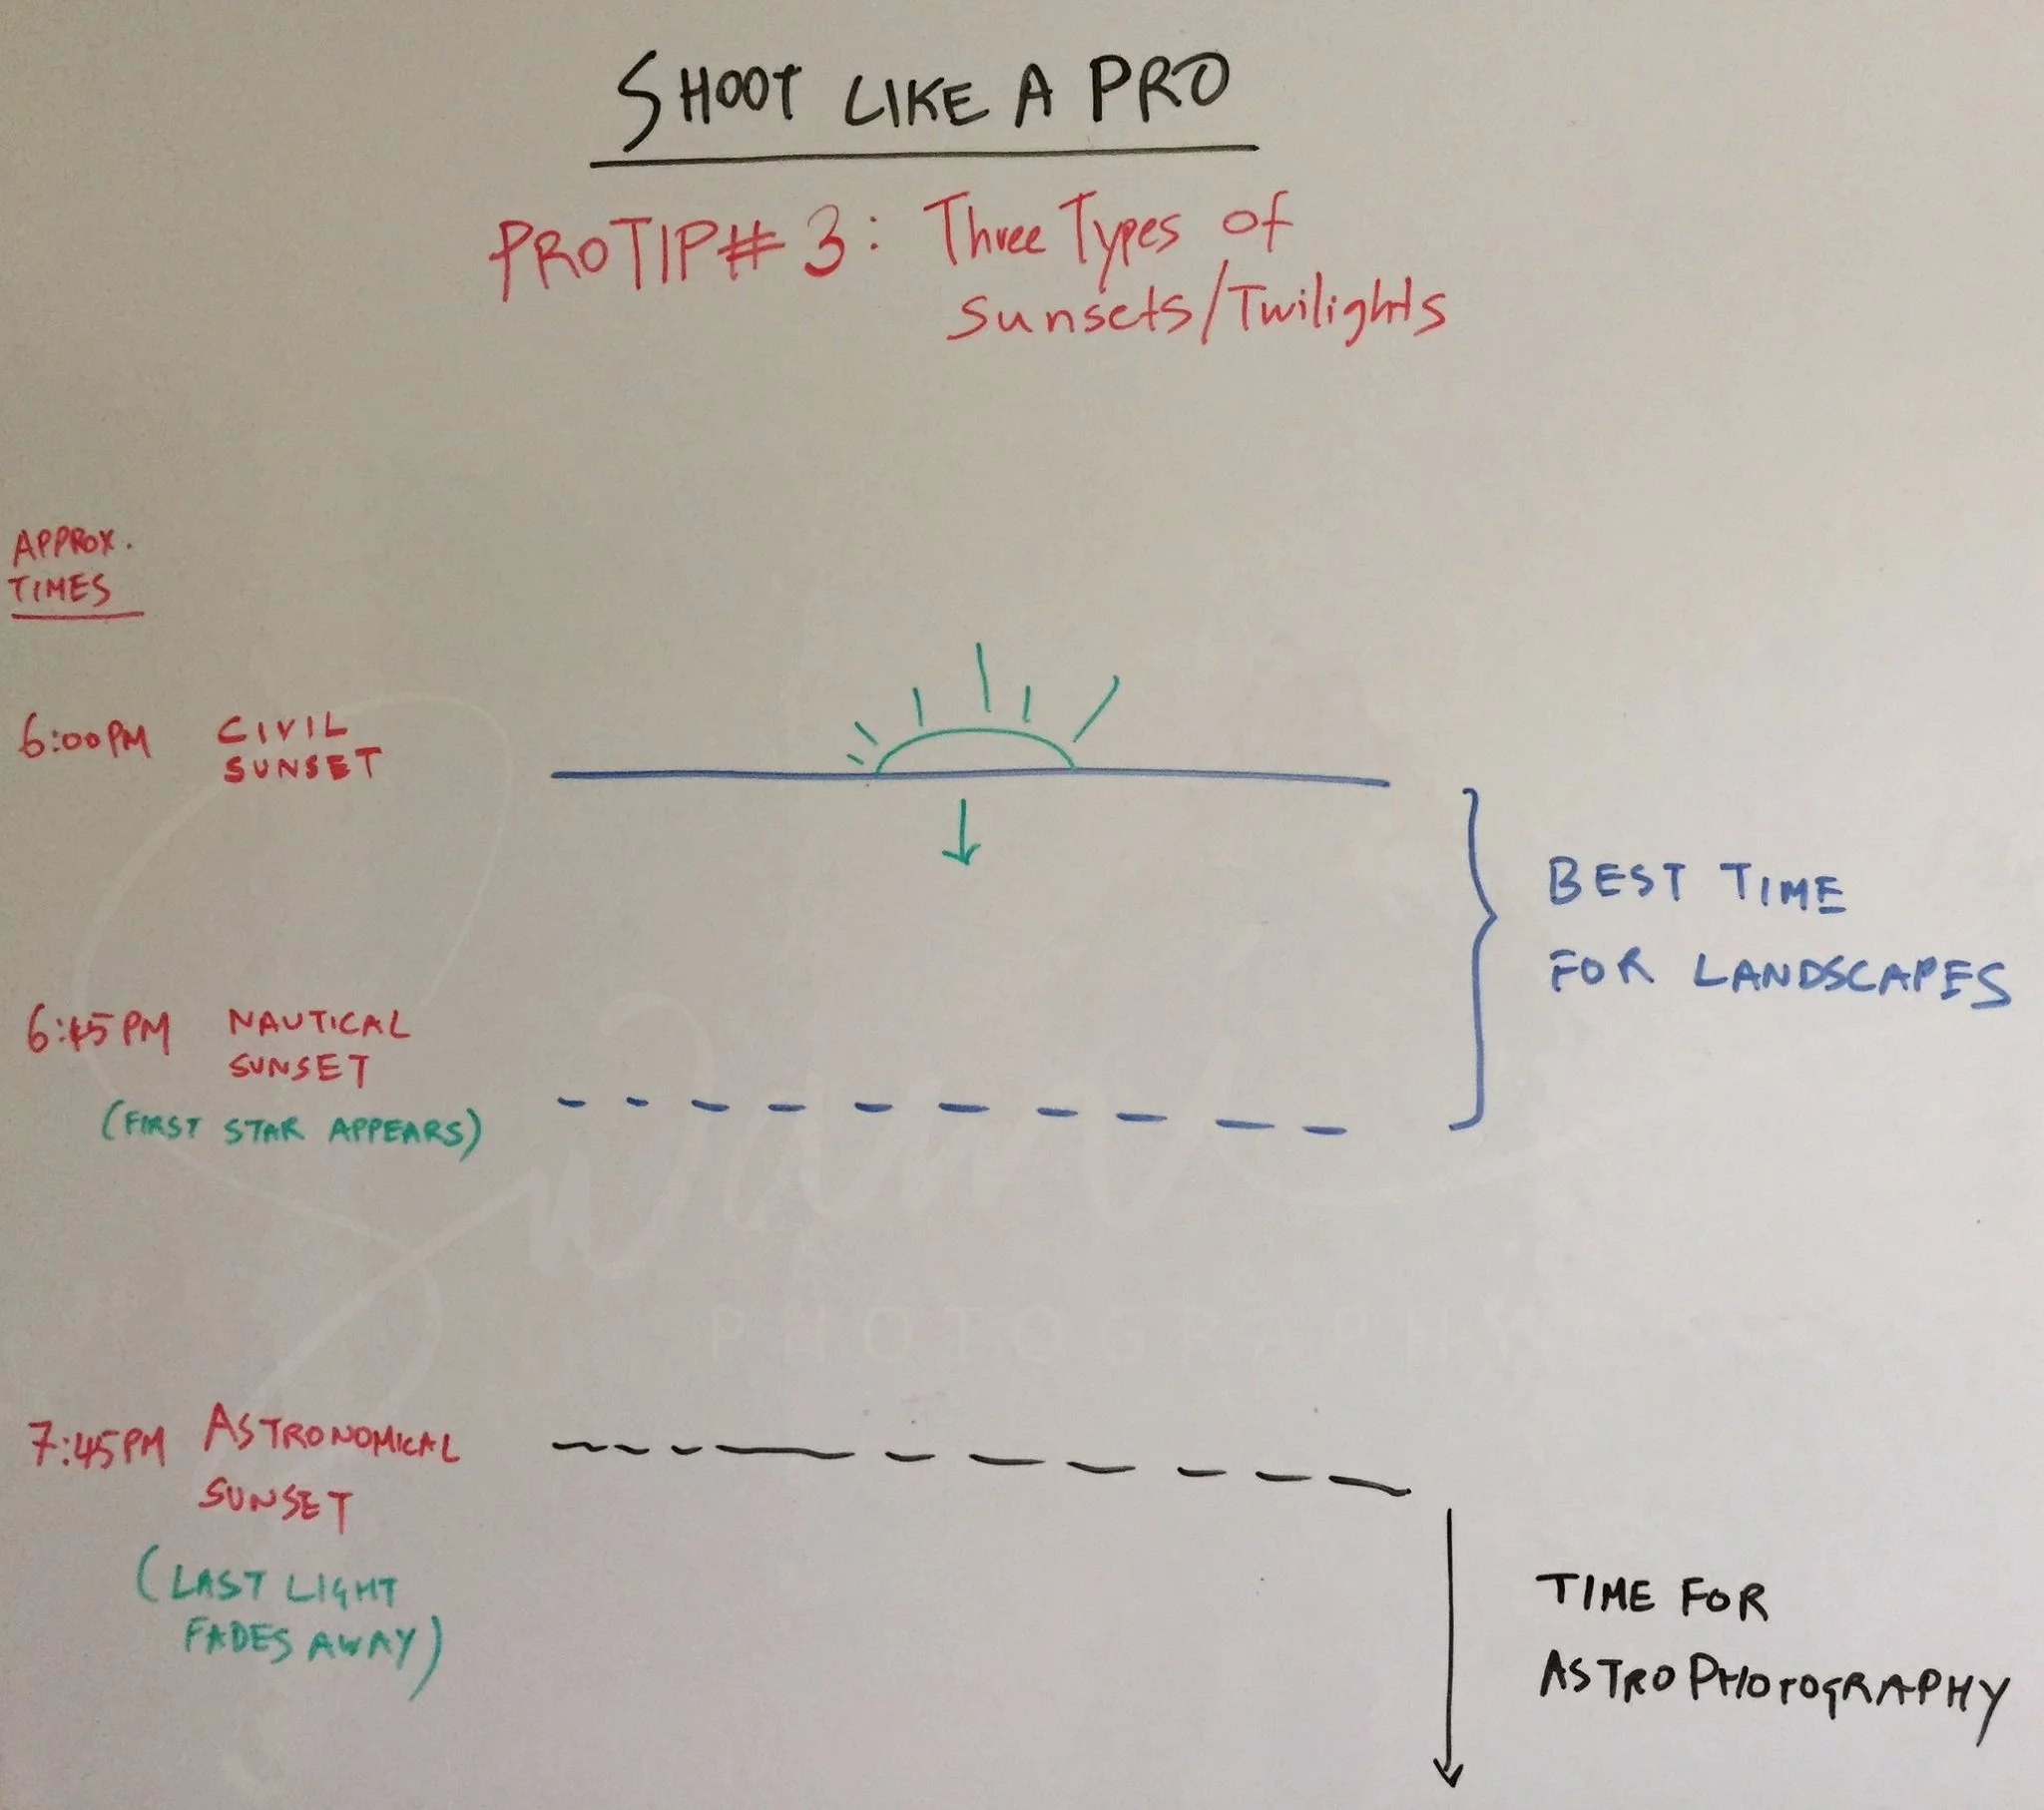 SHOOT LIKE A PRO
PRO TIP# 3: Three Types of
Sunsets/Twilights
APPROX.
TIMES
6:00PM CIVIL
SUNSET
BEST TIME
FOR LANDSCAPES
6:45PM NAUTICAL
SUNSET
(FIRST STAR APPEARS)
PHOTOGRAPHY
7:45PM ASTRONOMICAL
SUNSET
(LAST LIGHT
FADES AWAY)
TIME FOR
ASTROPHOTOGRAPHY